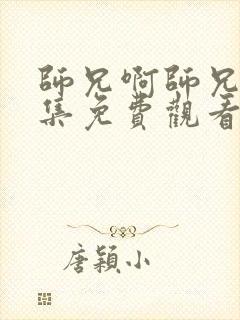 師兄啊師兄
集免費觀看
唐穎小